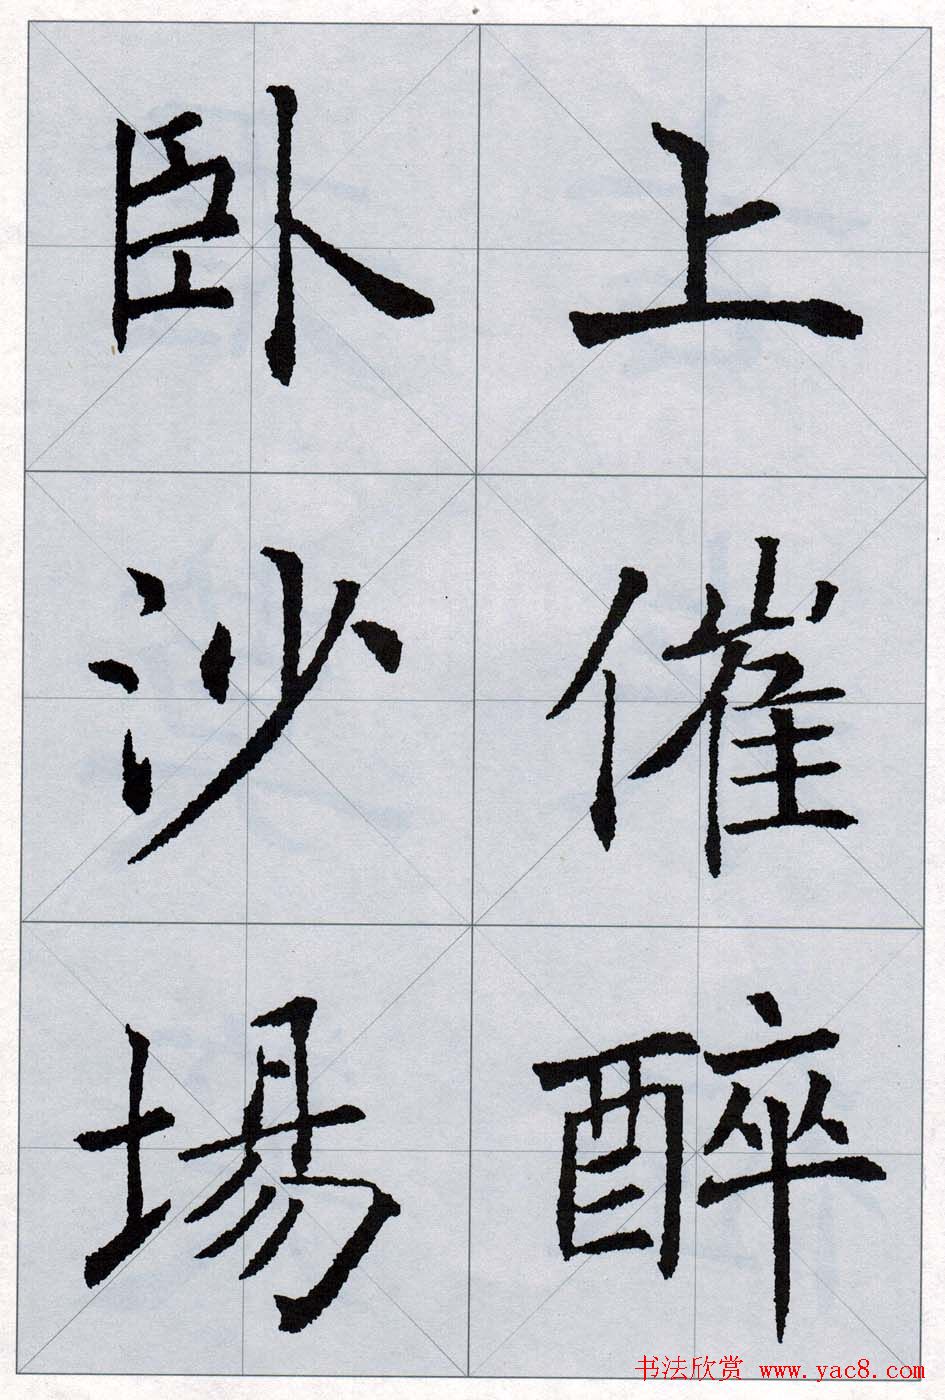 上催醉
卧沙場
书法欣赏 www.yac8.com